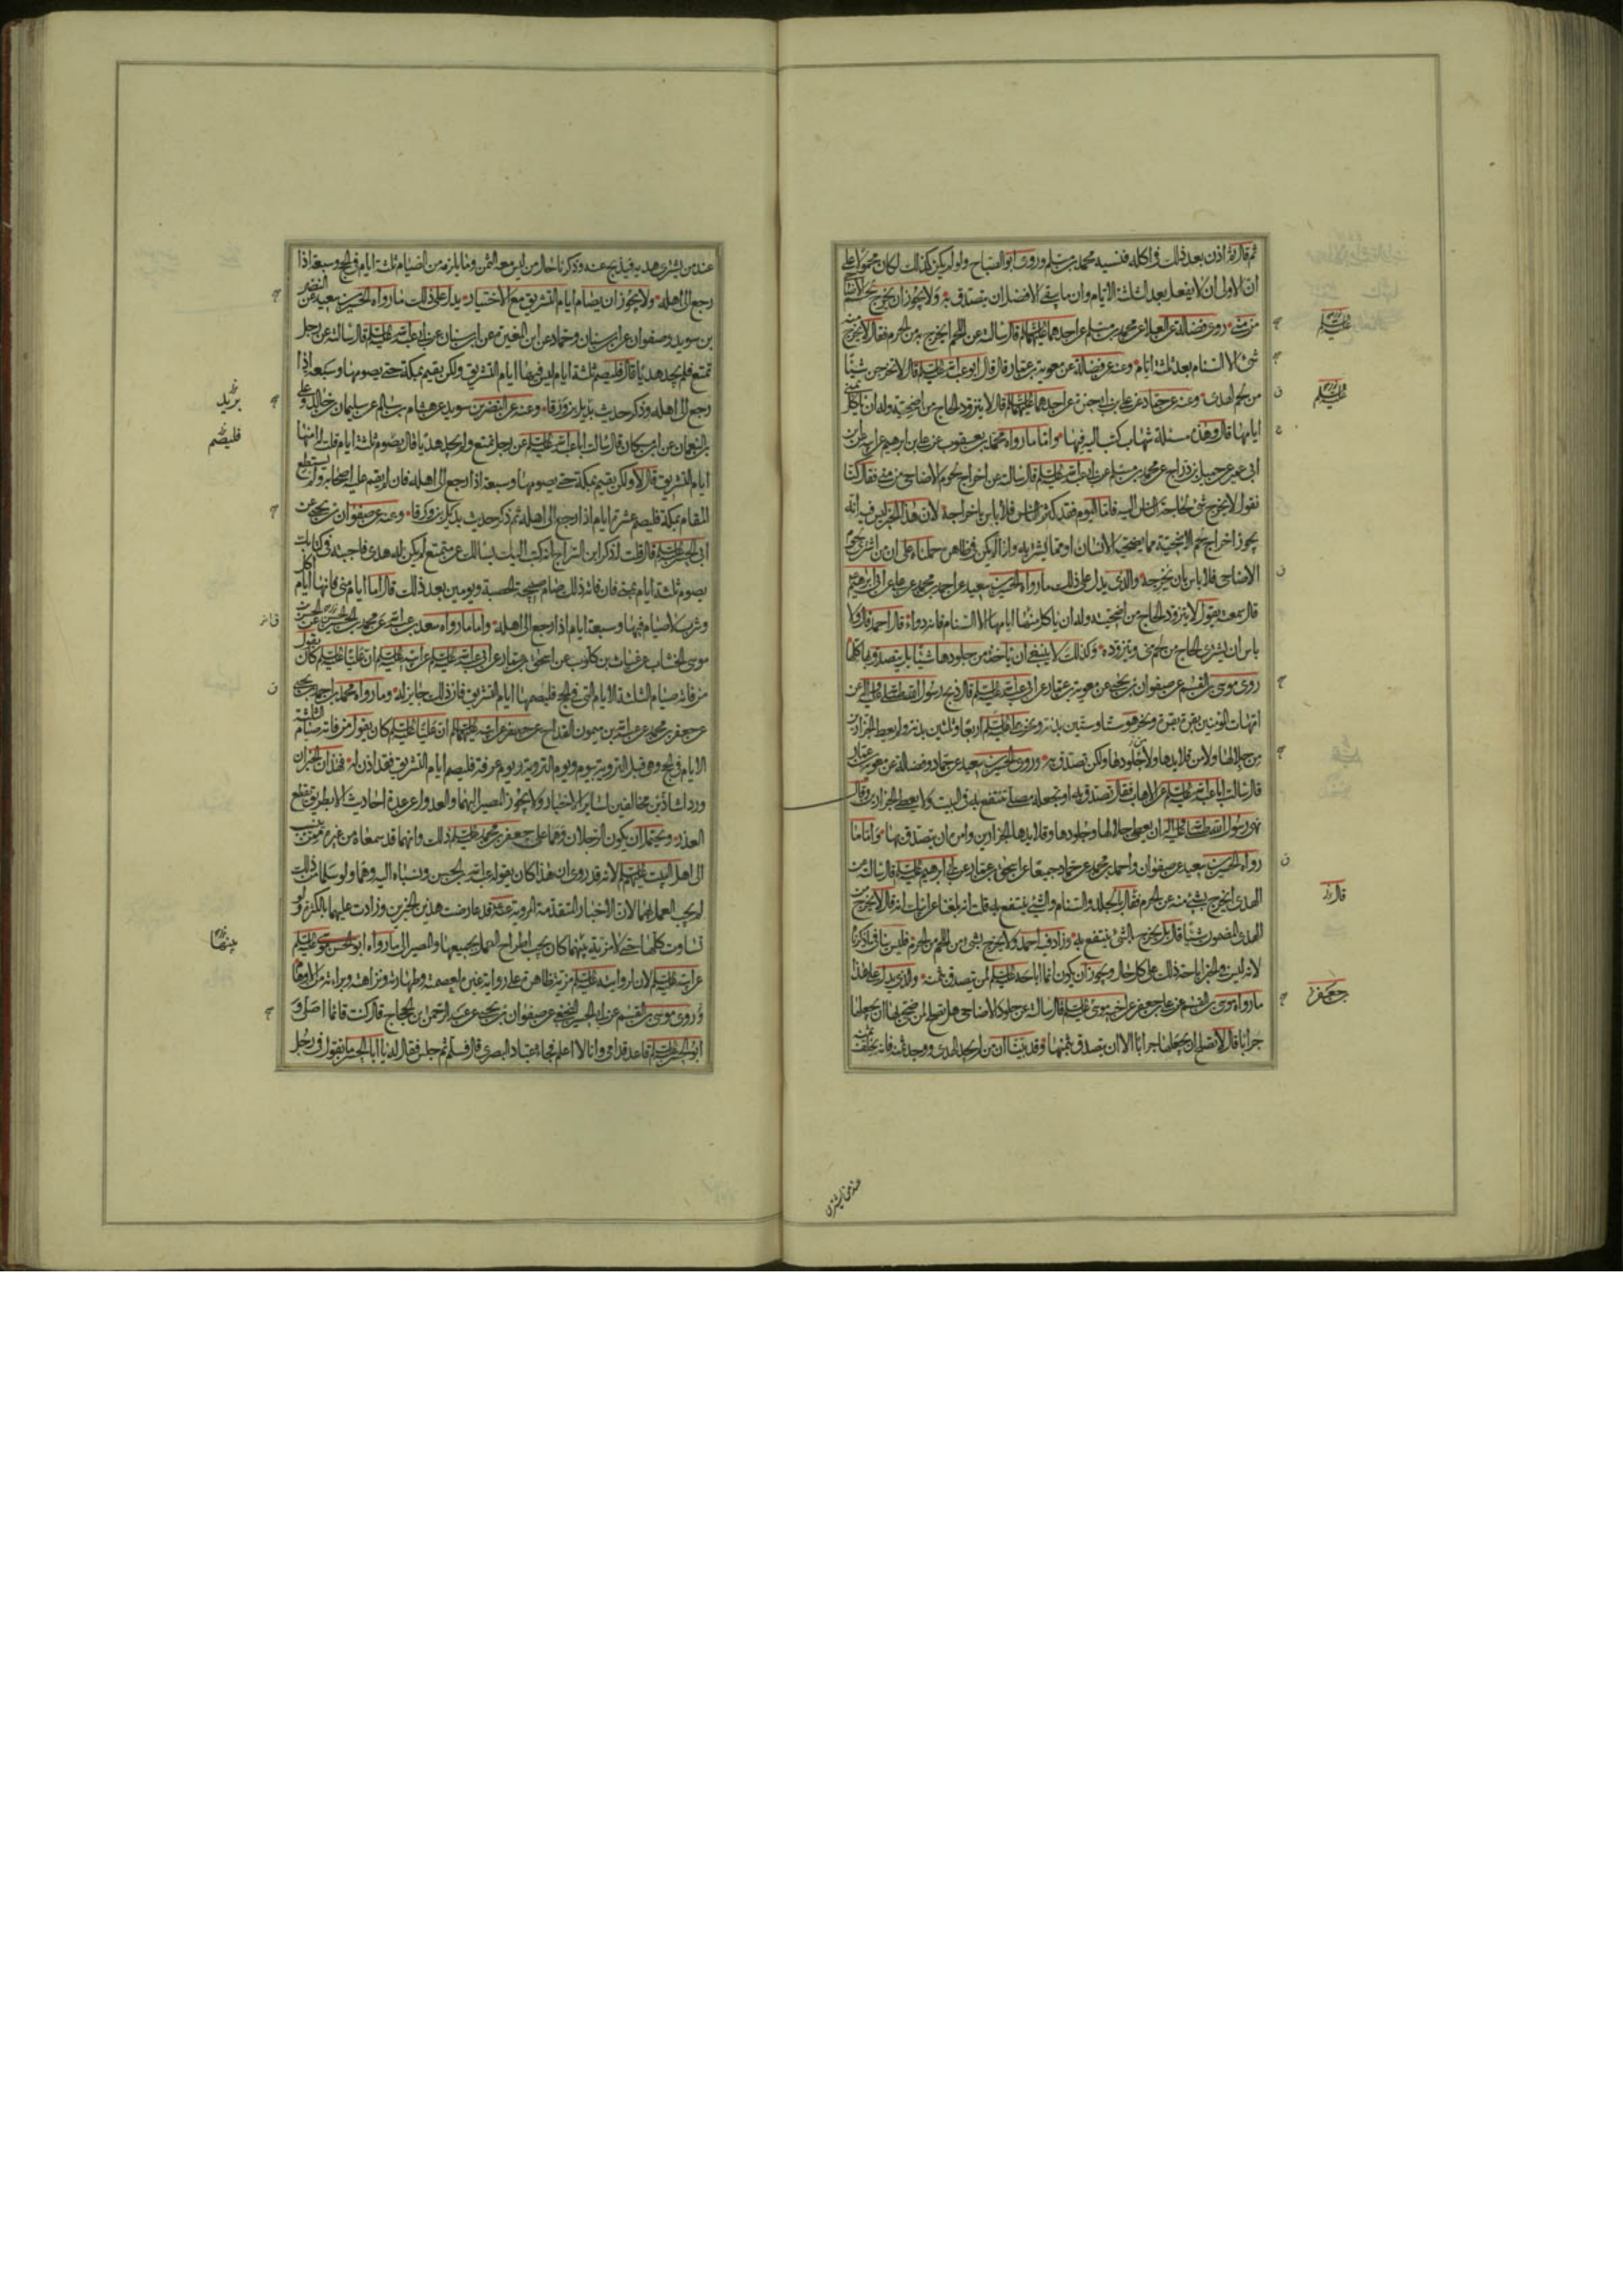 ثم قال وقد اذن بعد ذلك في اكله فنسيه محمد بن مسلم وروى ابو الصباح ولو لم يكن كذلك لكان محمولا على
ان الاولى ان لا يفعل بعد الثلثة الايام وان ما يبقى الافضل ان يتصدق به ولا يجوز ان يخرج لحم الاضاحي
من منى روى فضالة عن العلا عن محمد بن مسلم عن احدهما عليهما السلم قال سالته عن اللحم ايخرج به من الحرم فقال لا يخرج منه
شئ الا السنام بعد ثلثة ايام وعنه عن فضالة عن معوية بن عمار قال قال ابو عبد الله عليه السلم لا تخرجن شيئا
من لحم الهدى وعنه عن حماد عن علي بن ابي حمزة عن احدهما عليهما السلم قال لا يتزود الحاج من اضحيته وله ان ياكل بمنى
ايامها قال وهذه مسئلة شهاب كتب اليه فيها واما ما رواه محمد بن يعقوب عن علي بن ابرهيم عن ابيه عن ابن
ابي عمير عن جميل بن دراج عن محمد بن مسلم عن ابي عبد الله عليه السلم قال سالته عن اخراج لحوم الاضاحي من منى فقال كنا
نقول لا يخرج شئ لحاجة الناس اليه فاما اليوم فقد كثر الناس فلا باس باخراجه لان هذا الخبر ليس فيه انه
يجوز اخراج لحم الاضحية مما يضحيه الانسان او مما يشتريه واذا لم يكن في ظاهره حملناه على ان من اشترى لحوم
الاضاحي فلا باس بان يخرجه والذي يدل على ذلك ما رواه الحسين بن سعيد عن احمد بن محمد عن علي عن ابي ابرهيم
قال سمعته يقول لا يتزود الحاج من اضحيته وله ان ياكل منها ايامها الا السنام فانه دواء قال احمد قال ولا
باس ان يشتري الحاج من لحم منى ويتزوده وكذلك لا ينبغي ان ياخذ من جلودها شيئا بل يتصدق بها كلها
روى موسى بن القسم عن صفوان بن يحيى عن معوية بن عمار عن ابي عبد الله عليه السلم قال ذبح رسول الله صلى الله عليه واله عن
امهات المؤمنين بقرة بقرة ونحر هو ستا وستين بدنة ونحر علي عليه السلم اربعا وثلثين بدنة ولم يعط الجزارين
من جلالها ولا من قلايدها ولا من جلودها ولكن تصدق به وروى الحسين بن سعيد عن حماد وفضالة عن معوية بن عمار
قال سالت ابا عبد الله عليه السلم عن الاهاب فقال تصدق به او تجعله مصلى تنتفع به في البيت ولا يعطى الجزارين وقال
نهى رسول الله صلى الله عليه واله ان يعطى جلالها وجلودها وقلايدها الجزارين وامر ان يتصدق بها واما ما
رواه الحسين بن سعيد عن صفوان واحمد بن محمد عن حماد جميعا عن اسحق بن عمار عن ابي ابرهيم عليه السلم قال سالته عن
الهدى ايخرج بشئ منه عن الحرم فقال بالجلد والسنام والشئ ينتفع به قلت انه بلغنا عن ابيك انه قال لا يخرج من
الهدى المضمون شيئا قال بل يخرج بالشئ ينتفع به وزاد فيه احمد ولا يخرج بشئ من اللحم من الحرم فليس ينافي ما ذكرناه
لانه ليس في الخبر اباحة ذلك على كل حال ويجوز ان يكون انما اباحه عليه السلم لمن يتصدق بثمنه والذي يدل على هذا
ما رواه موسى بن القسم عن علي بن جعفر عن اخيه موسى عليه السلم قال سالته عن جلود الاضاحي هل يصلح لمن ضحى بها ان يجعلها
جرابا قال لا يصلح ان يجعلها جرابا الا ان يتصدق بثمنها وقد بينا ان من لم يجد الهدى ووجد ثمنه فانه يخلف ثمنه
عليه السلم
عليه السلم
قال
جعفر
عند من يشتري
عند من يشتري هديه فيذبح عنه وذكرنا حال من ليس معه الثمن وما يلزمه من الصيام ثلثة ايام في الحج وسبعة اذا
رجع الى اهله ولا يجوز ان يصام ايام التشريق مع الاختيار يدل على ذلك ما رواه الحسين بن سعيد عن النضر
بن سويد وصفوان عن ابن سنان وحماد عن ابن المغيرة عن ابن سنان عن ابي عبد الله عليه السلم قال سالته عن رجل
تمتع فلم يجد هديا قال فليصم ثلثة ايام ليس فيها ايام التشريق ولكن يقيم بمكة حتى يصومها وسبعة اذا
رجع الى اهله وذكر حديث بديل بن ورقا وعنه عن النضر بن سويد عن هشام بن سالم عن سليمان بن خالد وعلي
بن النعمان عن ابن مسكان قال سالت ابا عبد الله عليه السلم عن رجل تمتع ولم يجد هديا قال يصوم ثلثة ايام قلت له امنها
ايام التشريق قال لا ولكن يقيم بمكة حتى يصومها وسبعة اذا رجع الى اهله فان لم يقم عليه اصحابه ولم يستطع
المقام بمكة فليصم عشرة ايام اذا رجع الى اهله ثم ذكر حديث بديل بن ورقا وعنه عن صفوان بن يحيى عن
ابي الحسن عليه السلم قال قلت له ذكر ابن السراج انه كتب اليك يسالك عن متمتع لم يكن له هدى فاجبته في كتابك
يصوم ثلثة ايام بمنى فان فاته ذلك صام صبيحة الحصبة ويومين بعد ذلك قال اما ايام منى فانها ايام اكل
وشرب لا صيام فيها وسبعة ايام اذا رجع الى اهله واما ما رواه سعد بن عبد الله عن محمد بن الحسين عن الحسن بن
موسى الخشاب عن غياث بن كلوب عن اسحق بن عمار عن ابي عبد الله عليه السلم عن ابيه عليه السلم ان عليا عليه السلم كان يقول
من فاته صيام الثلثة الايام التي في الحج فليصمها ايام التشريق فان ذلك جايز له وما رواه محمد بن احمد بن يحيى
عن جعفر بن محمد عن عبد الله بن ميمون القداح عن جعفر عن ابيه عليهما السلم ان عليا عليه السلم كان يقول من فاته صيام الثلثة
الايام في الحج وهي قبل التروية بيوم ويوم التروية ويوم عرفة فليصم ايام التشريق فقد اذن له فهذان الخبران
وردا شاذين مخالفين لساير الاخبار ولا يجوز المصير اليهما والعدول عن عدة احاديث الا بطريق يقطع
العذر ويحتمل ان يكون الرجلان وهما على جعفر بن محمد عليه السلم ذلك وانهما قد سمعاه من غيره ممن ينسب
الى اهل البيت عليهم السلم لانه قد روى ان هذا كان يقوله عبد الله بن الحسن ونسباه اليه وهما ولو سلما من ذلك
لم يجب العمل بهما لان الاخبار المتقدمة المروية عنه قد عارضت هذين الخبرين وزادت عليهما بالكثرة ولو
تساوت كلها حتى لا مزية بينهما كان يجب اطراح العمل بجميعها والمصير الى ما رواه ابو الحسن موسى عليه السلم
عن ابيه عليه السلم لان لروايته عليه السلم مزية ظاهرة على رواية غيره لعصمته وطهارته ونزاهته وبراءته من الاوهام
وروى موسى بن القسم عن ابي الحسين النخعي عن صفوان بن يحيى عن عبد الرحمن بن الحجاج قال كنت قائما اصلى و
ابو الحسن عليه السلم قاعد قدامي وانا لا اعلم فجاءه عباد البصري قال فسلم ثم جلس فقال له يا ابا الحسن ما تقول في رجل
فليصم
بينها